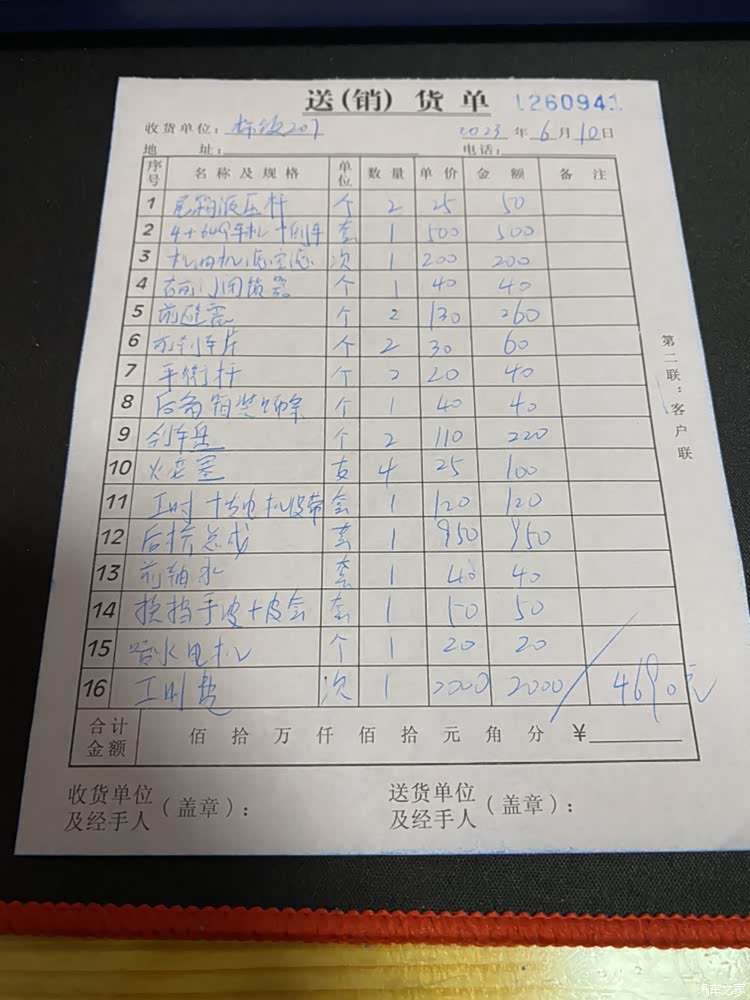 送(销)货单 1260941
收货单位: 标致207 2023年6月10日
地 址: 电话:
序号 名称及规格 单位 数量 单价 金额 备注
1 尾箱液压杆 个 2 25 50
2 套 1 500 500
3 机油机滤空滤 次 1 200 200
4 右前门闭锁器 个 1 40 40
5 前避震 个 2 130 260
6 刹车片 个 2 30 60
7 平衡杆 个 2 20 40
8 后备箱 个 1 40 40
9 刹车盘 个 2 110 220
10 火花塞 支 4 25 100
11 工时+发电机皮带 套 1 120 120
12 后桥总成 套 1 950 950
13 前轴承 套 1 40 40
14 换挡手波+皮套 套 1 50 50
15 喷水电机 个 1 20 20
16 工时费 次 1 2000 2000 4690元
合计金额 佰 拾 万 仟 佰 拾 元 角 分 ¥
第二联:客户联
收货单位及经手人(盖章): 送货单位及经手人(盖章):
汽车之家